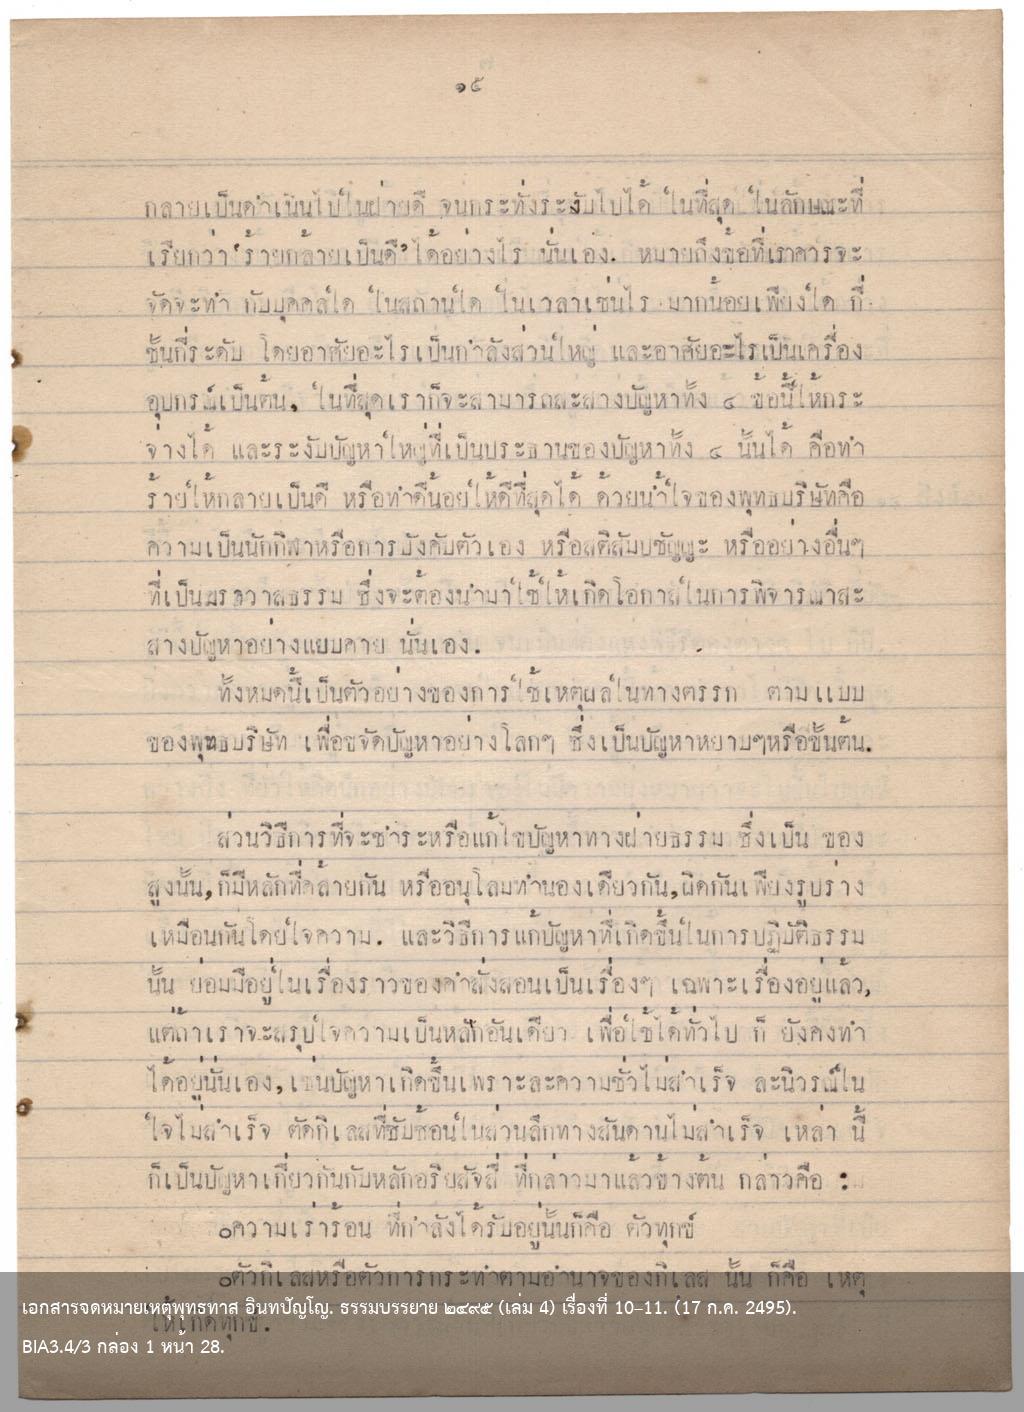 ๑๕
กลายเป็นดำเนินไปในฝ่ายดี จนกระทั่งระงับไปได้ ในที่สุด ในลักษณะที่
เรียกว่า‘ร้ายกลายเป็นดี’ได้อย่างไร นั่นเอง. หมายถึงข้อที่เราควรจะ
จัดจะทำ กับบุคคลใด ในสถานใด ในเวลาเช่นไร มากน้อยเพียงใด กี่
ชั้นกี่ระดับ โดยอาศัยอะไรเป็นกำลังส่วนใหญ่ และอาศัยอะไรเป็นเครื่อง
อุปกรณ์เป็นต้น, ในที่สุดเราก็จะสามารถสะสางปัญหาทั้ง ๔ ข้อนี้ให้กระ
จ่างได้ และระงับปัญหาใหญ่ที่เป็นประธานของปัญหาทั้ง ๔ นั้นได้ คือทำ
ร้ายให้กลายเป็นดี หรือทำดีน้อยให้ดีที่สุดได้ ด้วยน้ำใจของพุทธบริษัทคือ
ความเป็นนักกีฬาหรือการบังคับตัวเอง หรือสติสัมปชัญญะ หรืออย่างอื่นๆ
ที่เป็นฆราวาสธรรม ซึ่งจะต้องนำมาใช้ให้เกิดโอกาสในการพิจารณาสะ
สางปัญหาอย่างแยบคาย นั่นเอง.
ทั้งหมดนี้เป็นตัวอย่างของการใช้เหตุผลในทางตรรก ตามแบบ
ของพุทธบริษัท เพื่อขจัดปัญหาอย่างโลกๆ ซึ่งเป็นปัญหาหยาบๆหรือขั้นต้น.
ส่วนวิธีการที่จะชำระหรือแก้ไขปัญหาทางฝ่ายธรรม ซึ่งเป็น ของ
สูงนั้น,ก็มีหลักที่คล้ายกัน หรืออนุโลมทำนองเดียวกัน,ผิดกันเพียงรูปร่าง
เหมือนกันโดยใจความ. และวิธีการแก้ปัญหาที่เกิดขึ้นในการปฏิบัติธรรม
นั้น ย่อมมีอยู่ในเรื่องราวของคำสั่งสอนเป็นเรื่องๆ เฉพาะเรื่องอยู่แล้ว,
แต่ถ้าเราจะสรุปใจความเป็นหลักอันเดียว เพื่อใช้ได้ทั่วไป ก็ ยังคงทำ
ได้อยู่นั่นเอง,เช่นปัญหาเกิดขึ้นเพราะละความชั่วไม่สำเร็จ ละนิวรณ์ใน
ใจไม่สำเร็จ ตัดกิเลสที่ซับซ้อนในส่วนลึกทางสันดานไม่สำเร็จ เหล่า นี้
ก็เป็นปัญหาเกี่ยวกันกับหลักอริยสัจสี่ ที่กล่าวมาแล้วข้างต้น กล่าวคือ :
๐ความเร่าร้อน ที่กำลังได้รับอยู่นั้นก็คือ ตัวทุกข์
๐ตัวกิเลสหรือตัวการกระทำตามอำนาจของกิเลส นั้น ก็คือ เหตุ
ให้เกิดทุกข์.
เอกสารจดหมายเหตุพุทธทาส อินทปัญโญ. ธรรมบรรยาย ๒๔๙๕ (เล่ม 4) เรื่องที่ 10–11. (17 ก.ค. 2495).
BIA3.4/3 กล่อง 1 หน้า 28.